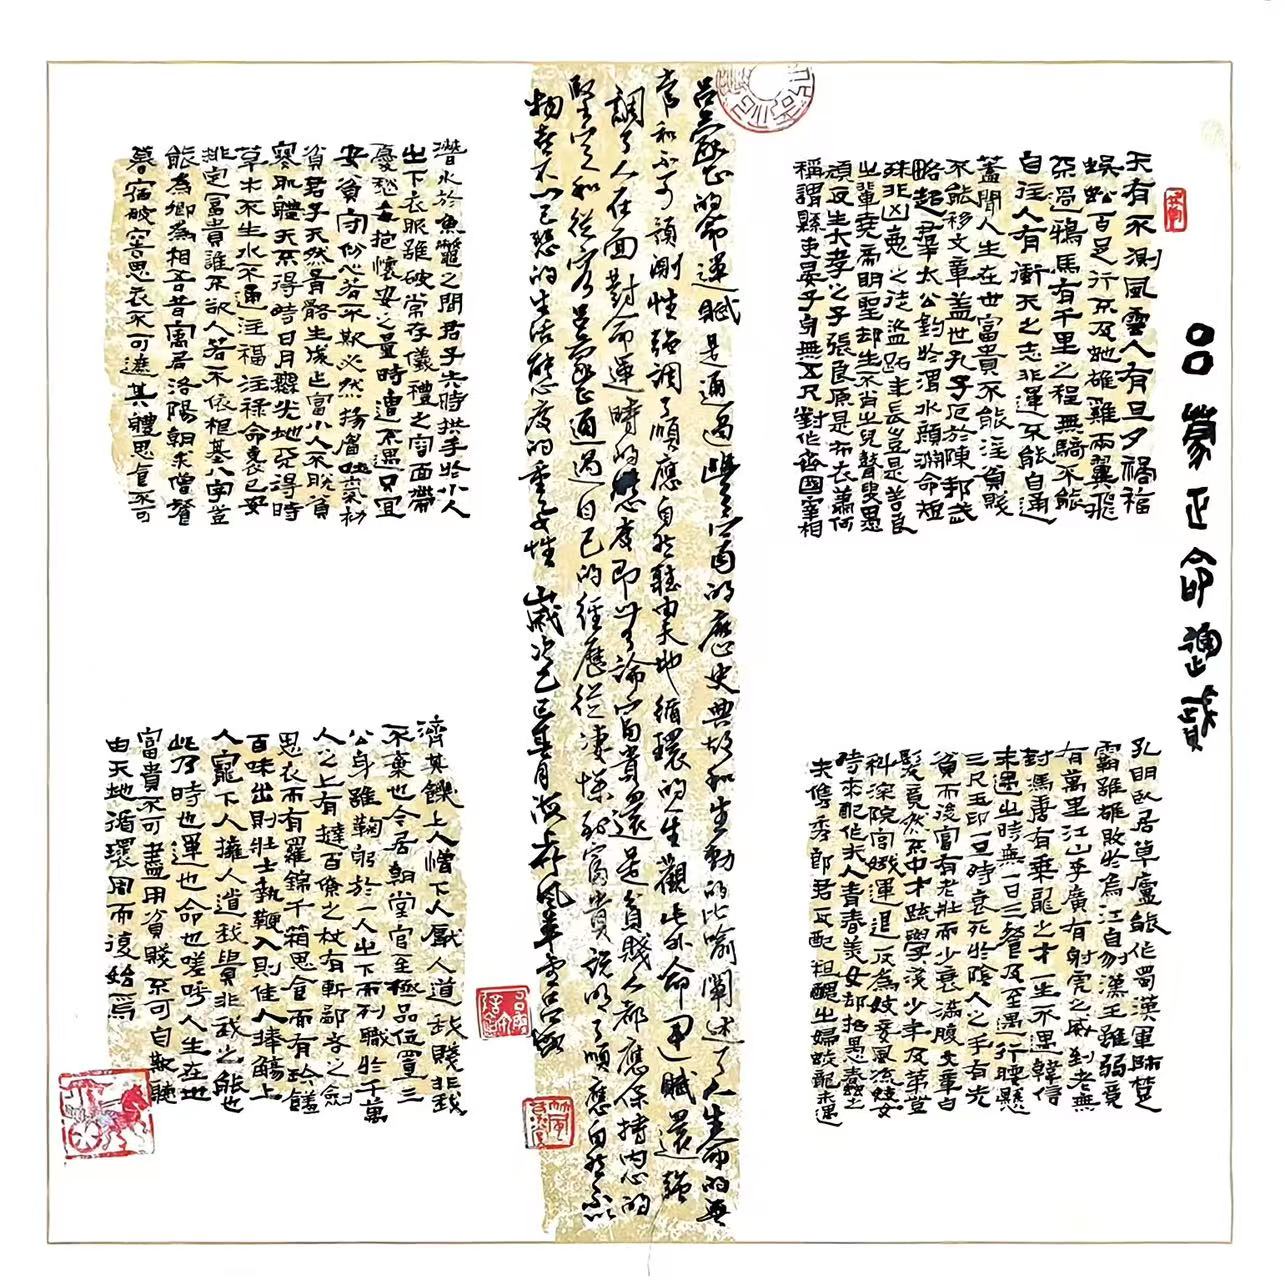 吕蒙正命运赋
天有不测风云人有旦夕祸福
蜈蚣百足行不及蛇雄雞兩翼飛
不過鴉馬有千里之程無騎不能
自往人有衝天之志非運不能自通
蓋聞人生在世富貴不能淫貧賤
不能移文章盖世孔子厄於陳邦武
略超羣太公釣於渭水顏淵命短
殊非凶惡之徒盗跖年長豈是善良
之輩堯帝明聖却生不肖之兒瞽叟愚
頑反生大孝之子張良原是布衣蕭何
稱謂縣吏晏子身無五尺封作齊國宰相
孔明卧居草廬能作蜀漢軍師楚
霸雖雄敗於烏江自刎漢王雖弱竟
有萬里江山李廣有射虎之威到老無
封馮唐有乘龍之才一生不遇韓信
未遇之時無一日三餐及至遇行腰懸
三尺玉印一旦時衰死於陰人之手有先
貧而後富有老壯而少衰滿腹文章白
髮竟然不中才疏學淺少年及第登
科深院宫娥運退反為妓妾風流妓女
時來配作夫人青春美女却招愚蠢之
夫俊秀郎君反配粗醜之婦蛟龍未遇
吕蒙正的命運賦是通過豐富的歷史典故和生動的比喻闡述了人生命的無
常和不可預測性強調了順應自然聽由天地循環的人生觀此外命運賦還強
調了人在面對命運時的態度即無論富貴還是貧賤人都應保持内心的
堅定和從容吕蒙正通過自己的經歷從凄慘到富貴説明了順應自然不以
物喜不以己悲的生活態度的重要性 歲次乙巳春月
潛水於魚鱉之間君子失時拱手於小人
之下衣服雖破常存儀禮之容面帶
憂愁每抱懷安之量時遭不遇只宜
安貧守份心若不欺必然揚眉吐氣初
貧君子天然骨骼生成乍富小人不脱貧
寒肌體天不得時日月無光地不得時
草木不生水不通注福注禄命裏已安
排定富貴誰不欲人若不依根基八字豈
能為卿為相吾昔寓居洛陽朝求僧餐
暮宿破窑思衣不可遮其體思食不可
濟其饑上人憎下人厭人道我賤非我
不棄也今居朝堂官至極品位置三
公身雖鞠躬於一人之下而列職於千萬
人之上有撻百僚之杖有斬鄙吝之劍
思衣而有羅錦千箱思食而有珍饈
百味出則壯士執鞭入則佳人捧觴上
人寵下人擁人道我貴非我之能也
此乃時也運也命也嗟呼人生在世
富貴不可盡用貧賤不可自欺聽
由天地循環周而復始焉